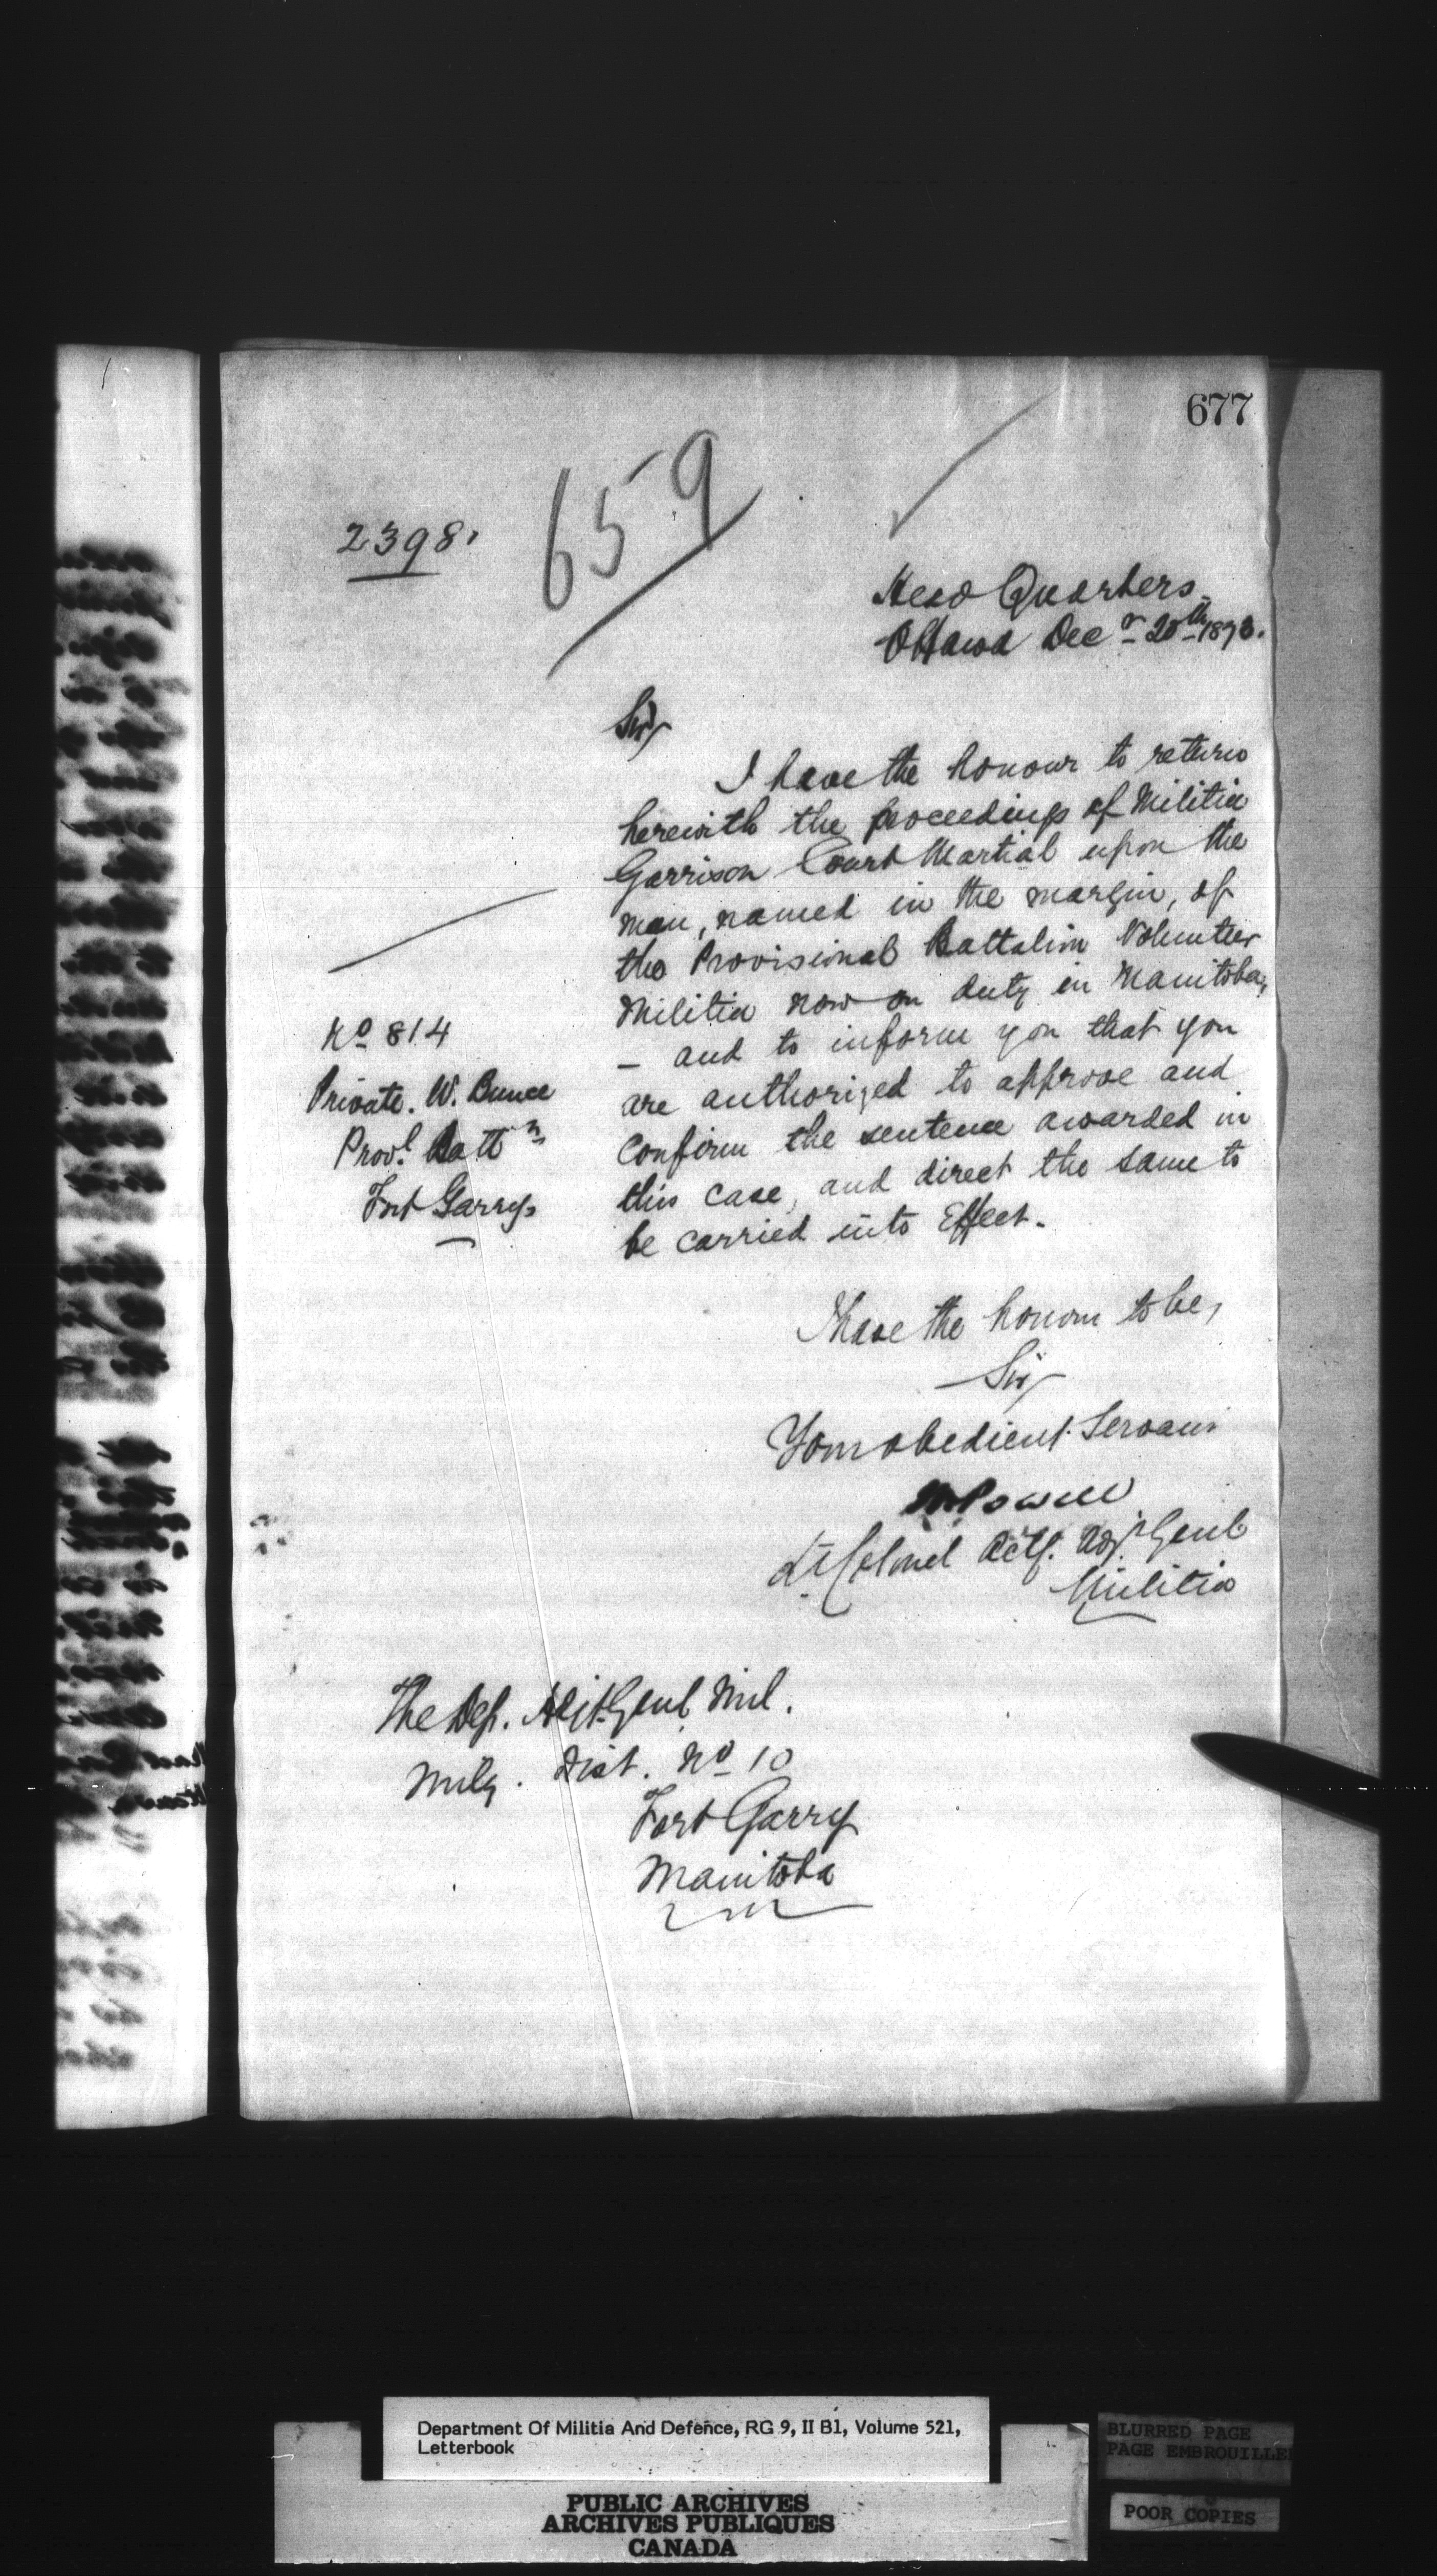 677
659
2398.
Head Quarters.
Ottawa Decr 20th 1873.
Sir,
I have the honour to return
herewith the proceedings of Militia
Garrison Court Martial upon the
man, named in the margin, of
the Provisional Battalion Volunteer
Militia now on duty in Manitoba,
— and to inform you that you
are authorized to approve and
confirm the sentence awarded in
this case, and direct the same to
be carried into Effect.
No 814
Private. W. Bunce
Provl. Battn
Fort Garry.
I have the honour to be,
Sir,
Your obedient Servant
W Powell
Lt Colonel Actg. Adjt Genl
Militia
The Dep. Adjt. Genl Mil.
Mily. Dist. No 10
Fort Garry
Manitoba
Department Of Militia And Defence, RG 9, II B1, Volume 521,
Letterbook
PUBLIC ARCHIVES
ARCHIVES PUBLIQUES
CANADA
BLURRED PAGE
PAGE EMBROUILLEE
POOR COPIES